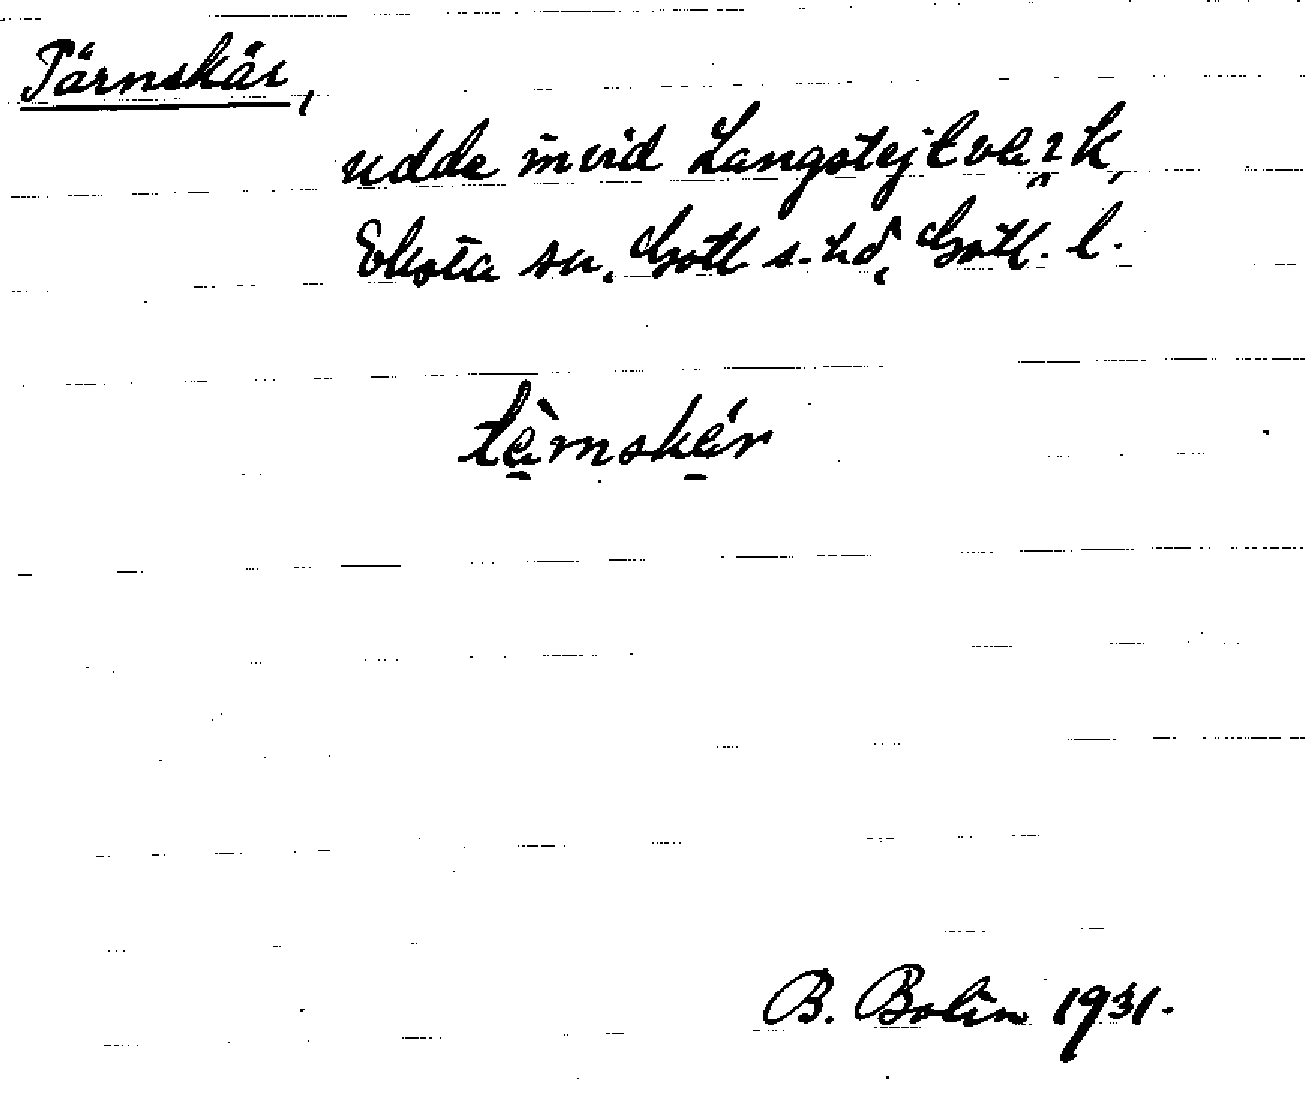 Tärnskär,
udde invid Langstejtveik,
Eksta sn, Gotl s. hd, Gotl. l.
tèrnskér
B. Bolin 1931.